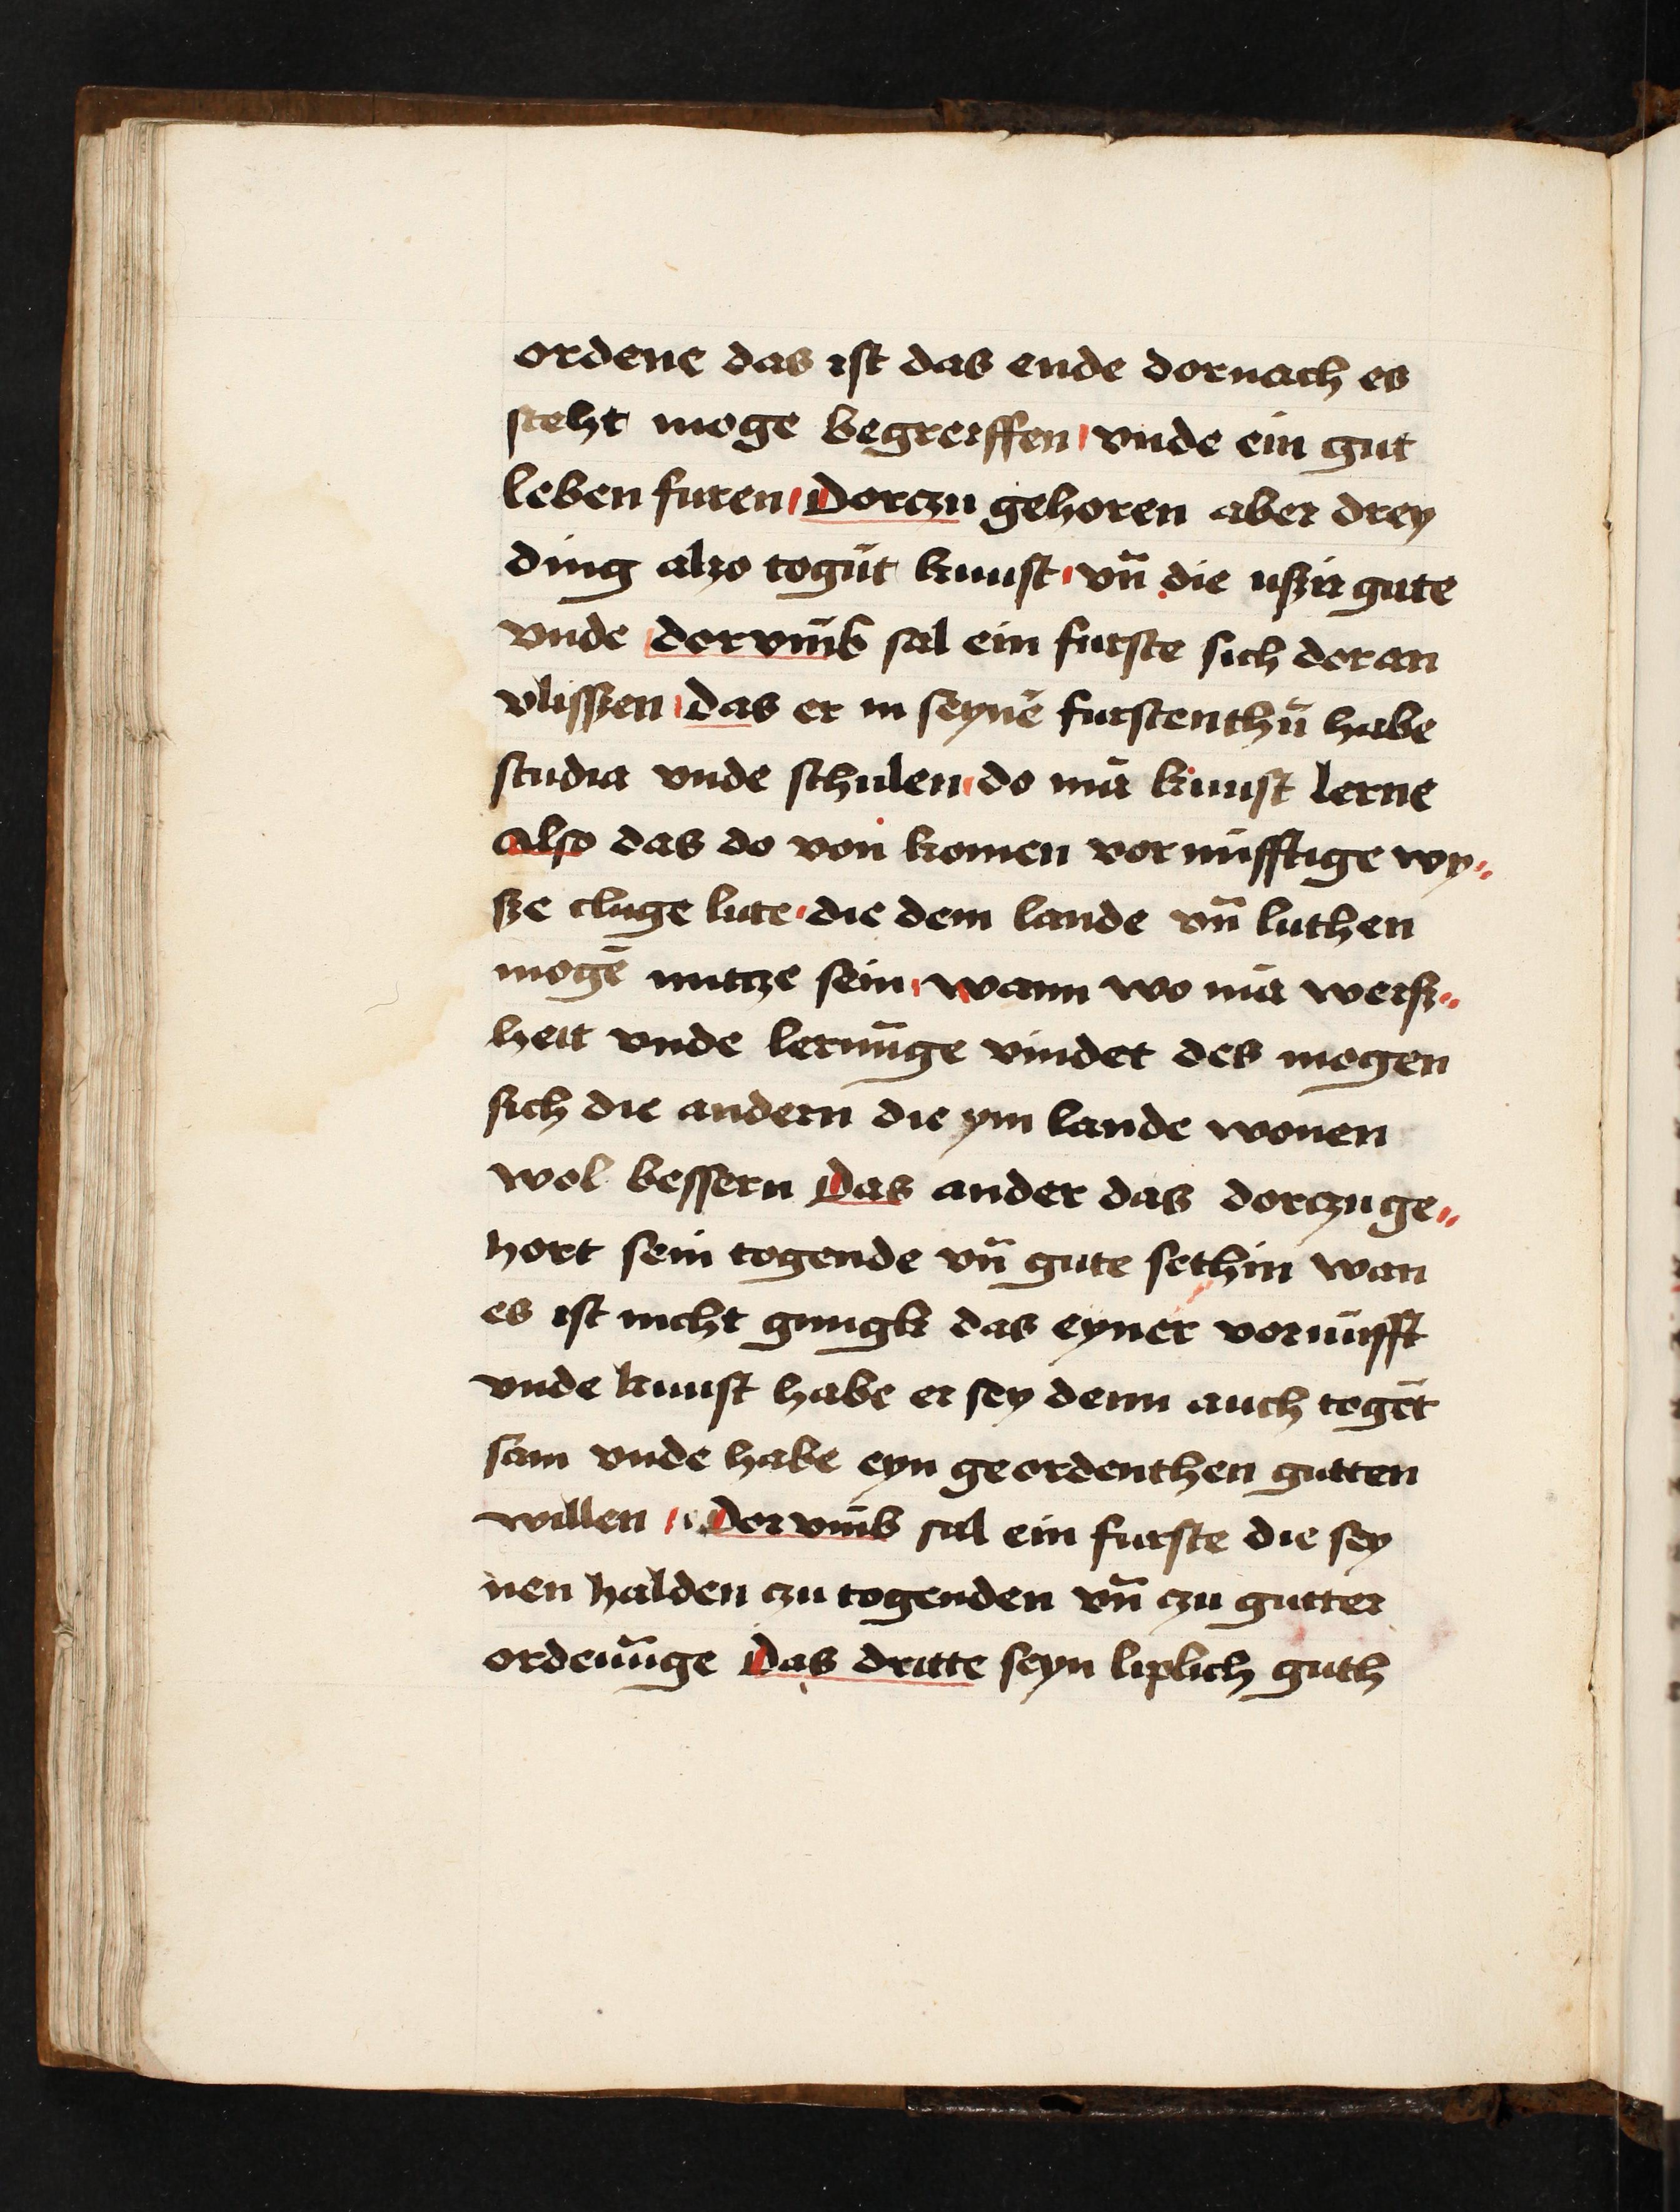 ordene das ist das ende dornach es
steht moge begreiffen vnde ein gut
leben furen Dorczu gehoren aber drey
ding alzo togūt kunst vn̄ die uszir gute
vnde dorvm̄b sal ein furste sich doran
vlisszen das er in seynē furstenthū habe
studia vnde schulen do mā kunst lerne
also das do von komen vornūfftige wy〃
sze cluge lute die dem lande vn̄ luthen
mogē nutcze sein wann wo mā weisz〃
heit vnde lernūge vindet des mogen
sich die andern die ym lande wonen
wol bessern Das ander das dorczu ge〃
hort sein togende vn̄ gute sethin wan
es ist nicht gnugk das eyner vornūfft
vnde kunst habe er sey denn auch togēt
sam vnde habe eyn geordenthen gutten
willen Dorvm̄b sal ein furste die sey
nen halden czu togenden vn̄ czu gutter
ordenūge Das dritte seyn liplich guth